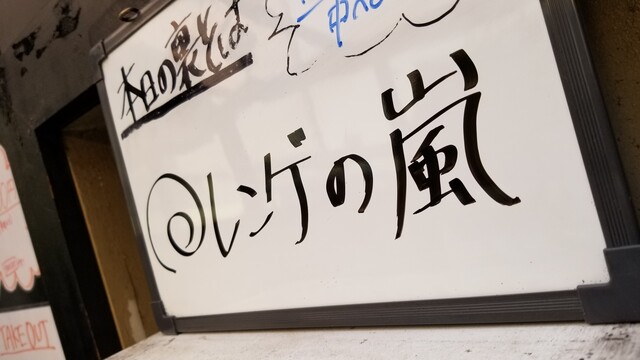 本日の裏そば
@レンゲの嵐
TAKE OUT